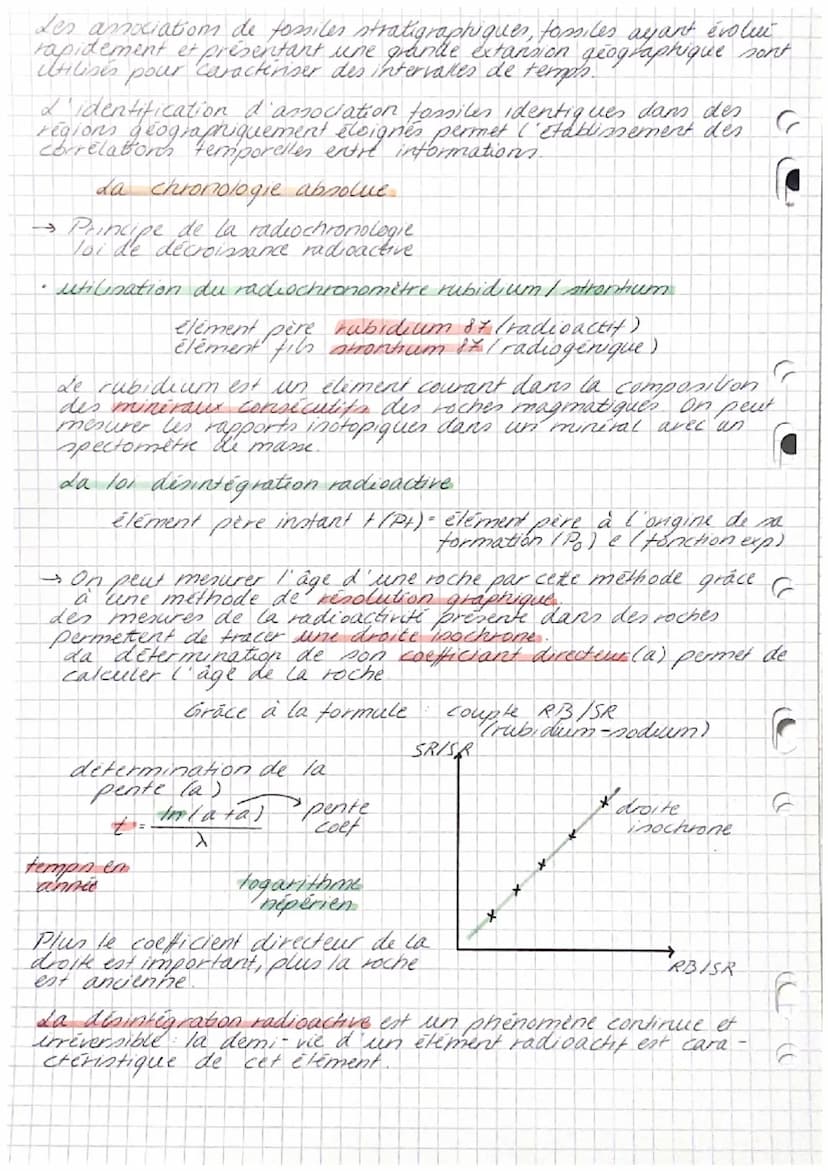 Les associations de fossiles stratigraphiques, fossiles ayant évolué
rapidement et présentant une grande extansion géographique sont
utilisés pour caractériser des intervalles de temps.
L'identification d'association fossiles identiques dans des
régions géographiquement éloignés permet l'établissement des
corrélations temporelles entre informations.
La chronologie absolue
→ Principe de la radiochronologie
loi de décroissance radioactive
• utilisation du radiochronomètre rubidium / strontium
élément père rubidium 87 (radioactif)
élément fils strontium 87 (radiogénique)
Le rubidium est un élément courant dans la composition
des minéraux consécutifs des roches magmatiques. On peut
mesurer les rapports isotopiques dans un minéral avec un
spectomètre de masse.
La loi désintégration radioactive
élément père instant t (Pt) = élément père à l'origine de sa
formation (P0) e (fonction exp)
→ On peut mesurer l'âge d'une roche par cette méthode grâce
à une méthode de résolution graphique.
des mesures de la radioactivité présente dans des roches
permettent de tracer une droite isochrone.
La détermination de son coefficiant directeur (a) permet de
calculer l'âge de la roche.
Grâce à la formule : couple RB/SR
(rubidium-sodium)
SR/SR
détermination de la
pente (a)
t = ln(a+a) / λ
pente
coef
droite
isochrone
temps en
année
logarithme
népérien
Plus le coefficient directeur de la
droite est important, plus la roche
est ancienne.
RB/SR
La désintégration radioactive est un phénomène continue et
irréversible : la demi-vie d'un élément radioactif est cara-
ctéristique de cet élément.